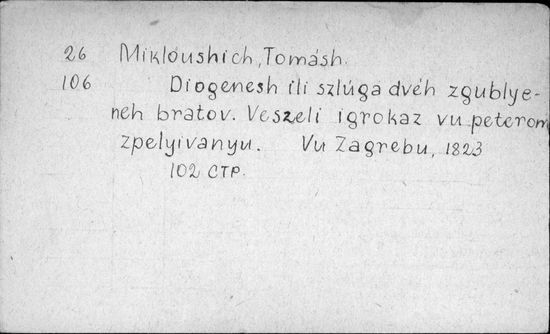 26 Miklóushich, Tomásh.
106 Diogenesh ili szlúga dvéh zgublye-
neh bratov. Veszeli igrokaz vu peterom
zpelyivanyu. Vu Zagrebu, 1823
102 стр.